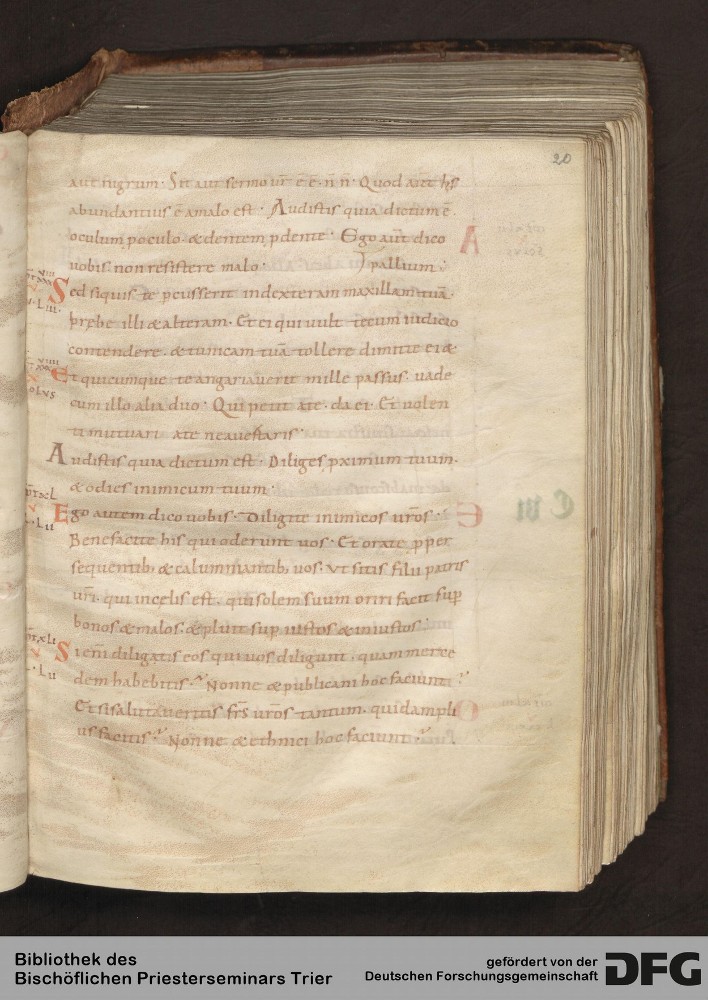 20
aut nigrum · Sit aut sermo ur̄ ē ē · n̄ n̄ · Quod aut̄ his
abundantius ē amalo est · Audistis quia dictum ē ·
oculum p oculo · & dentem p dente · Ego aut̄ dico
uobis non resistere malo · pallium ·
Sed siquis te pcusserit indexteram maxillam tuā ·
prębe illi & alteram · Et ei qui uult tecum iudicio
contendere · & tunicam tuā tollere dimitte ei &
Et quicumque te angariauerit mille passus · uade
cum illo alia duo · Qui petit ate · da ei · Et uolen
ti mutuari ate neauertaris ·
Audistis quia dictum est · Diliges pximum tuum ·
& odies inimicum tuum ·
Ego autem dico uobis · Diligite inimicos ur̄os ·
Benefacite his qui oderunt uos · Et orate p per
sequentib; & calumniantib; uos · ut sitis filii patris
ur̄i · qui incelis est · qui solem suum oriri facit sup
bonos & malos · & pluit sup iustos & iniustos ·
Si enī diligatis eos qui uos diligunt · quam merce
dem habebitis · Nonne & publicani hoc faciunt
Et si salutaueritis frs̄ ur̄os tantum · quid ampli
us facitis · Nonne & ethnici hoc faciunt ·
Bibliothek des
Bischöflichen Priesterseminars Trier
gefördert von der
Deutschen Forschungsgemeinschaft DFG